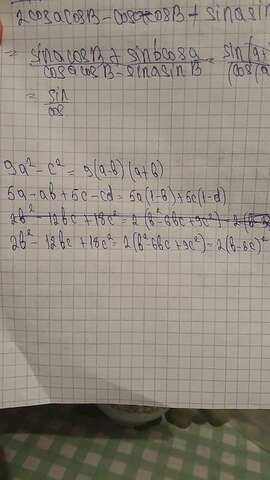 2cosacosB - cosacosB + sinasin
= sinacosB + sinbcosa / cosacosB - sinasinB = sin(a+ / (cos(a
= sin / cos
9a² - c² = 9(a-b)(a+b)
5a - ab + 5c - cd = 5a(1-b)+5c(1-d)
2b² - 12bc + 18c² = 2(b² - 6bc + 9c²) = 2(b-3c
2b² - 12bc + 18c² = 2(b² - 6bc + 9c²) = 2(b-3c)²